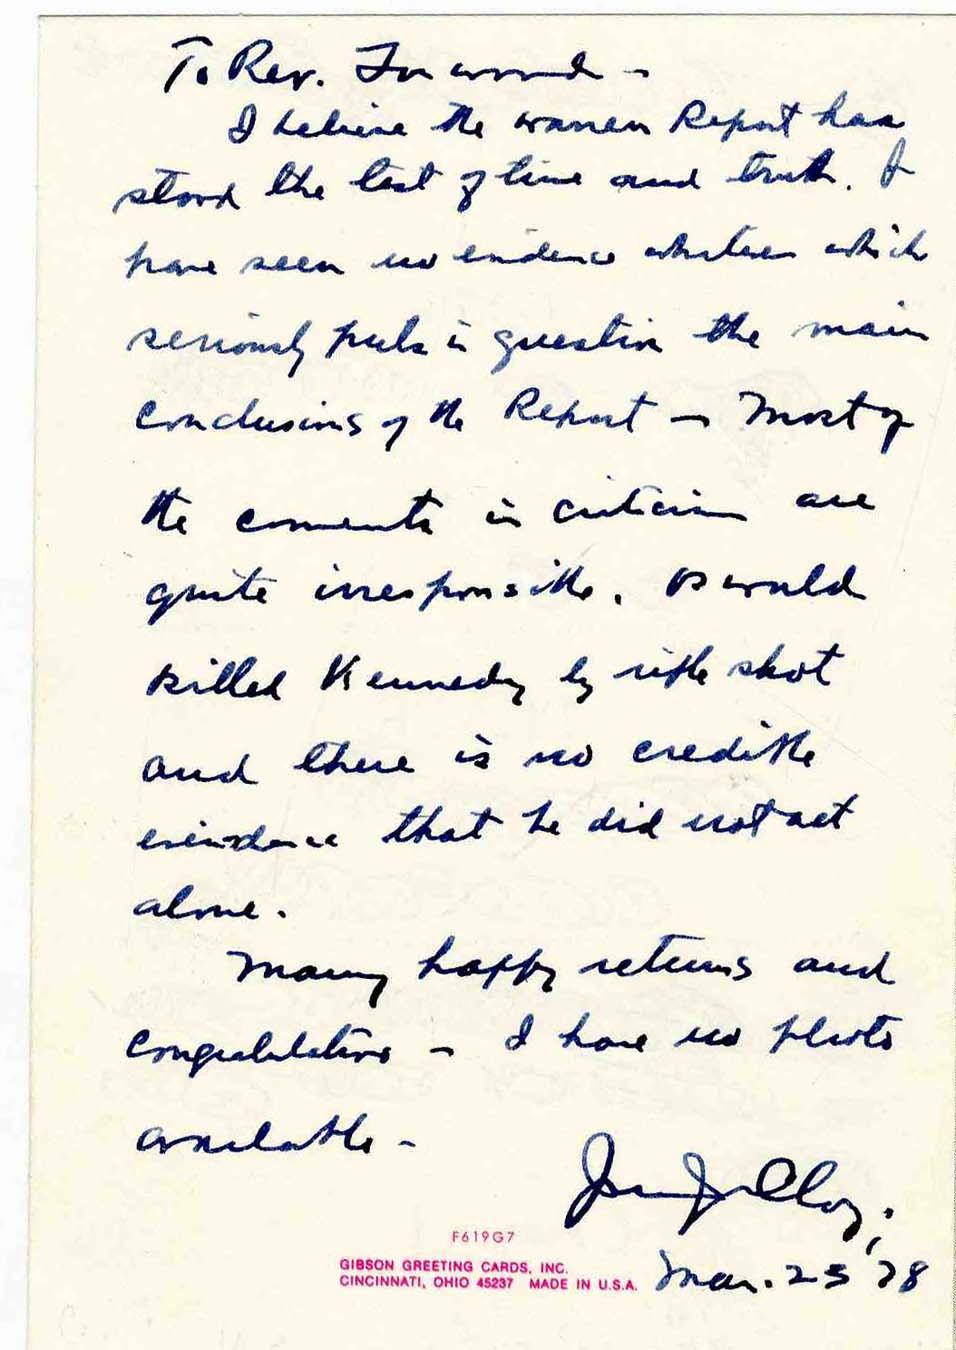 To Rev.
I believe the warren Report has
stood the test of time and truth. I
have seen no evidence whatever which
seriously puts in question the main
conclusions of the Report – Most of
the comments in criticism are
quite irresponsible. Oswald
killed Kennedy by rifle shot
and there is no credible
evidence that he did not act
alone.
Many happy returns and
congratulations – I have no photo
available –
John J McCloy,
F619G7
GIBSON GREETING CARDS, INC.
CINCINNATI, OHIO 45237 MADE IN U.S.A.
Mar. 25 '78